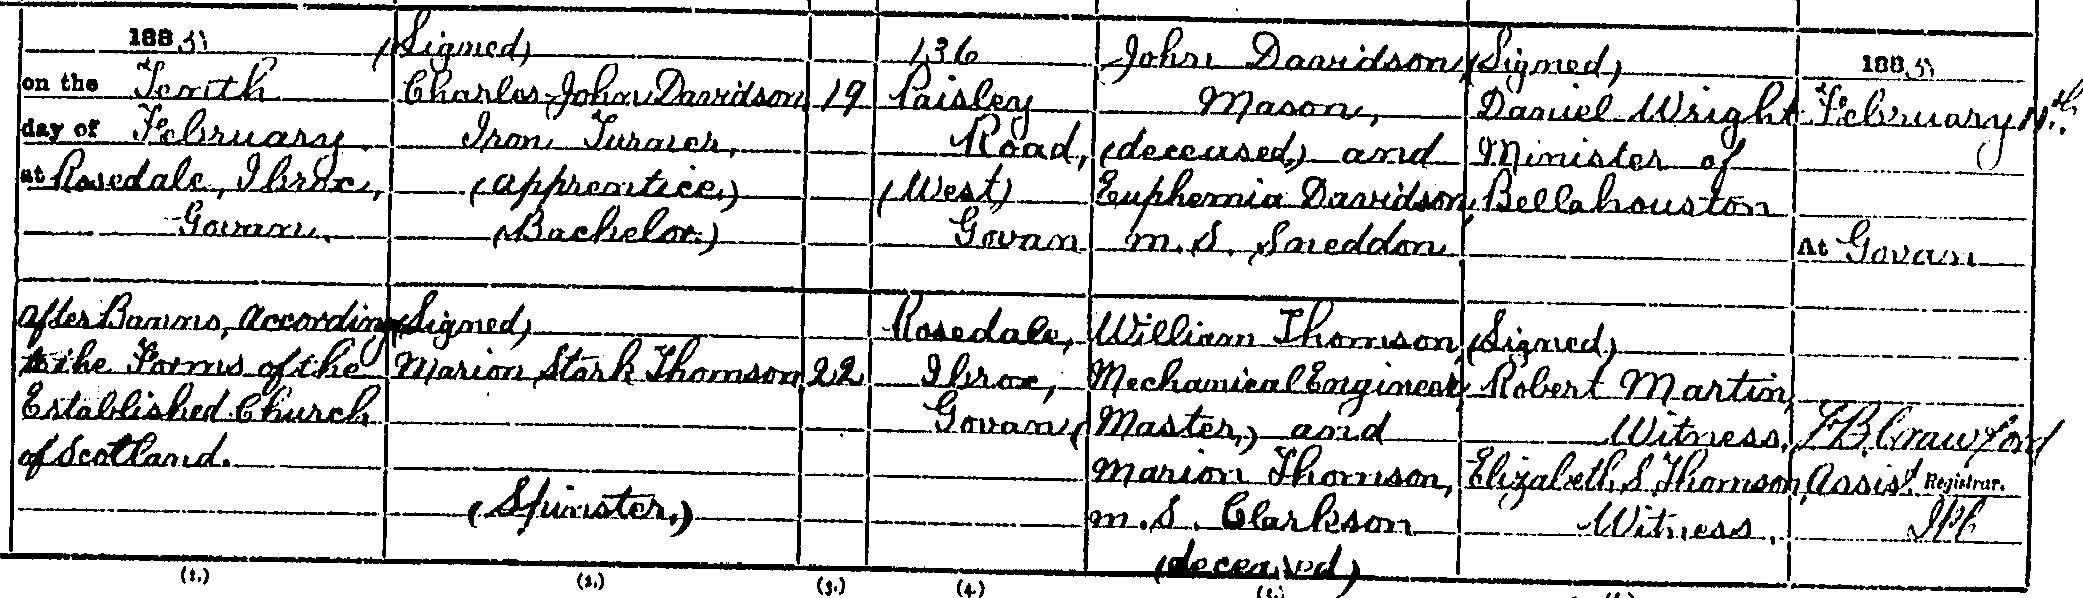 1885
on the Tenth
day of February.
at Rosedale, Ibrox,
Govan.
(Signed)
Charles John Davidson
Iron Turner,
(apprentice)
(Bachelor.)
19
136
Paisley
Road,
(West)
Govan
John Davidson,
Mason,
(deceased,) and
Euphemia Davidson,
m. S. Sneddon
(Signed)
Daniel Wright
Minister of
Bellahouston
1885
February 11th.
At Govan
after Banns, according
to the Forms of the
Established Church
of Scotland.
(Signed)
Marion Stark Thomson
(Spinster.)
22
Rosedale,
Ibrox,
Govan
William Thomson,
Mechanical Engineer,
(Master,) and
Marion Thomson,
m. S. Clarkson
(deceased)
(Signed)
Robert Martin,
Witness.
Elizabeth S. Thomson,
Witness.
Crawford
Assist. Registrar.
(1.)
(2.)
(3.)
(4.)